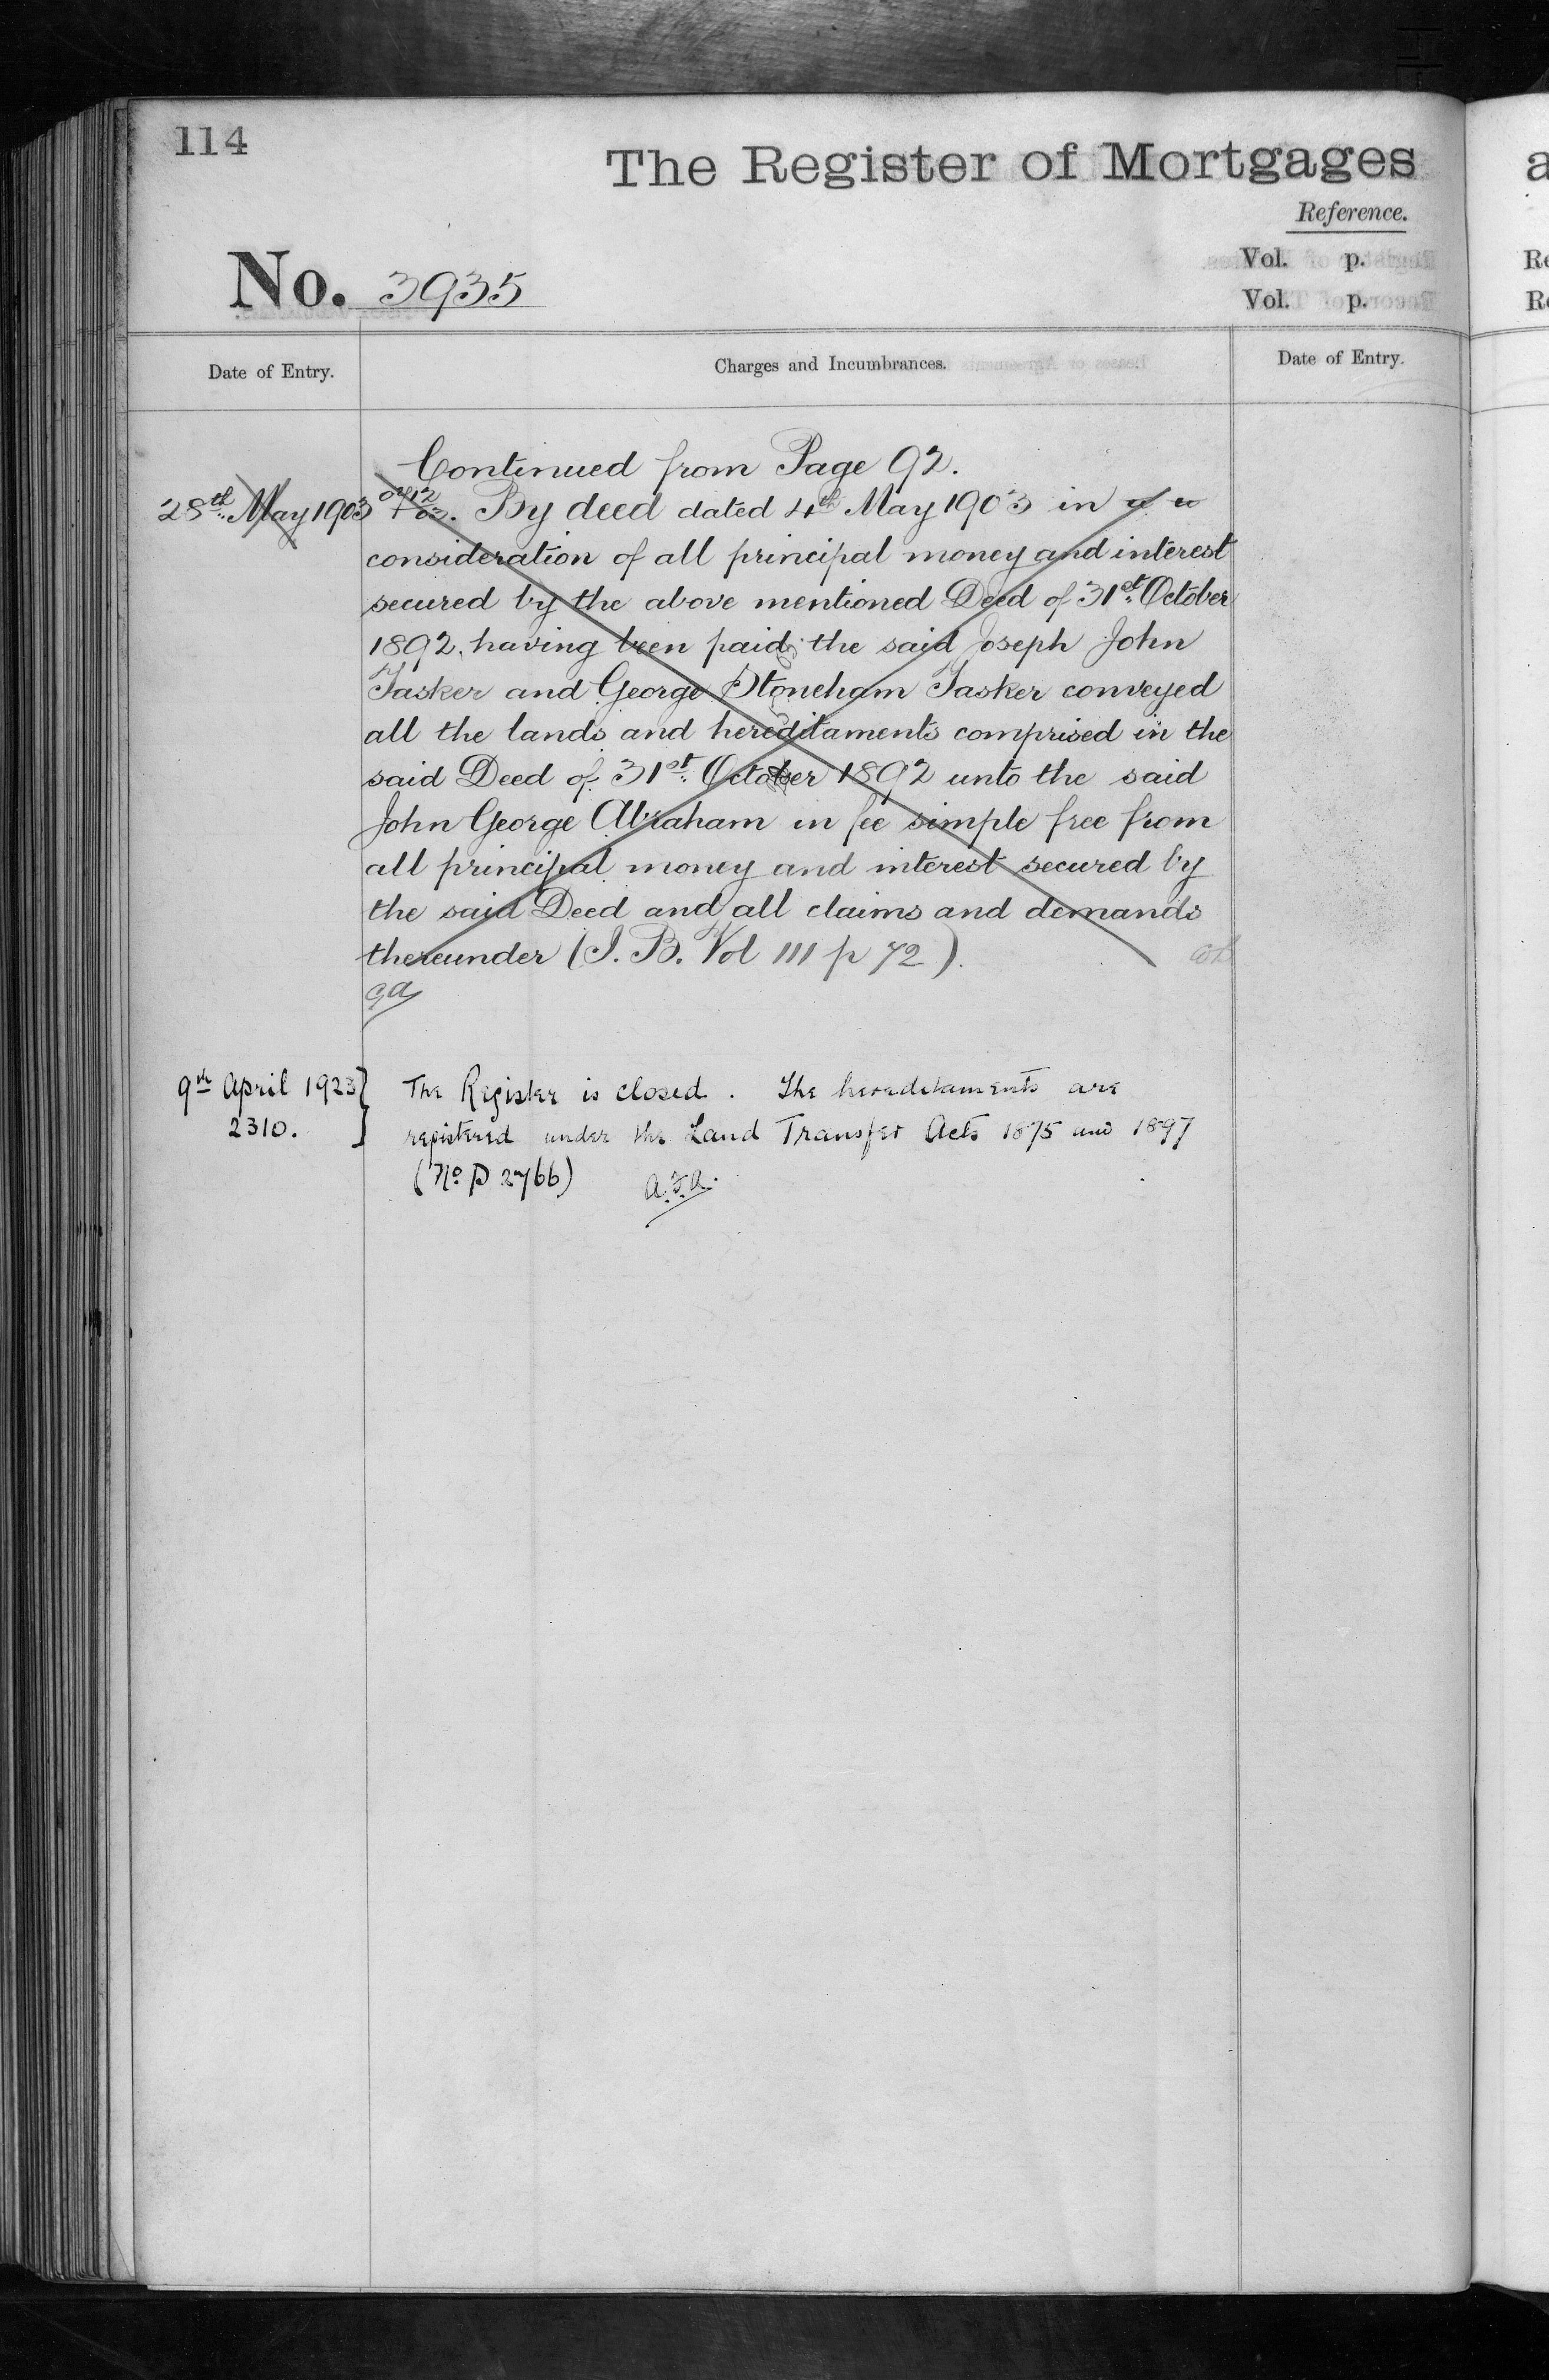 114
The Register of Mortgages
Reference.
Vol. p.
No. 3935
Vol. p.
Date of Entry.
Charges and Incumbrances.
Date of Entry.
Continued from Page 92.
28th May 1903
By deed dated 4th May 1903 in
consideration of all principal money and interest
secured by the above mentioned Deed of 31st October
1892, having been paid, the said Joseph John
Tasker and George Stoneham Tasker conveyed
all the lands and hereditaments comprised in the
said Deed of 31st October 1892 unto the said
John George Abraham in fee simple free from
all principal money and interest secured by
the said Deed and all claims and demands
thereunder (I. B. Vol 111 p 72).
ga
9th April 1923 } The Register is closed. The hereditaments are
2310. } registered under the Land Transfer Acts 1875 and 1897
(No P 2766) A.J.A.